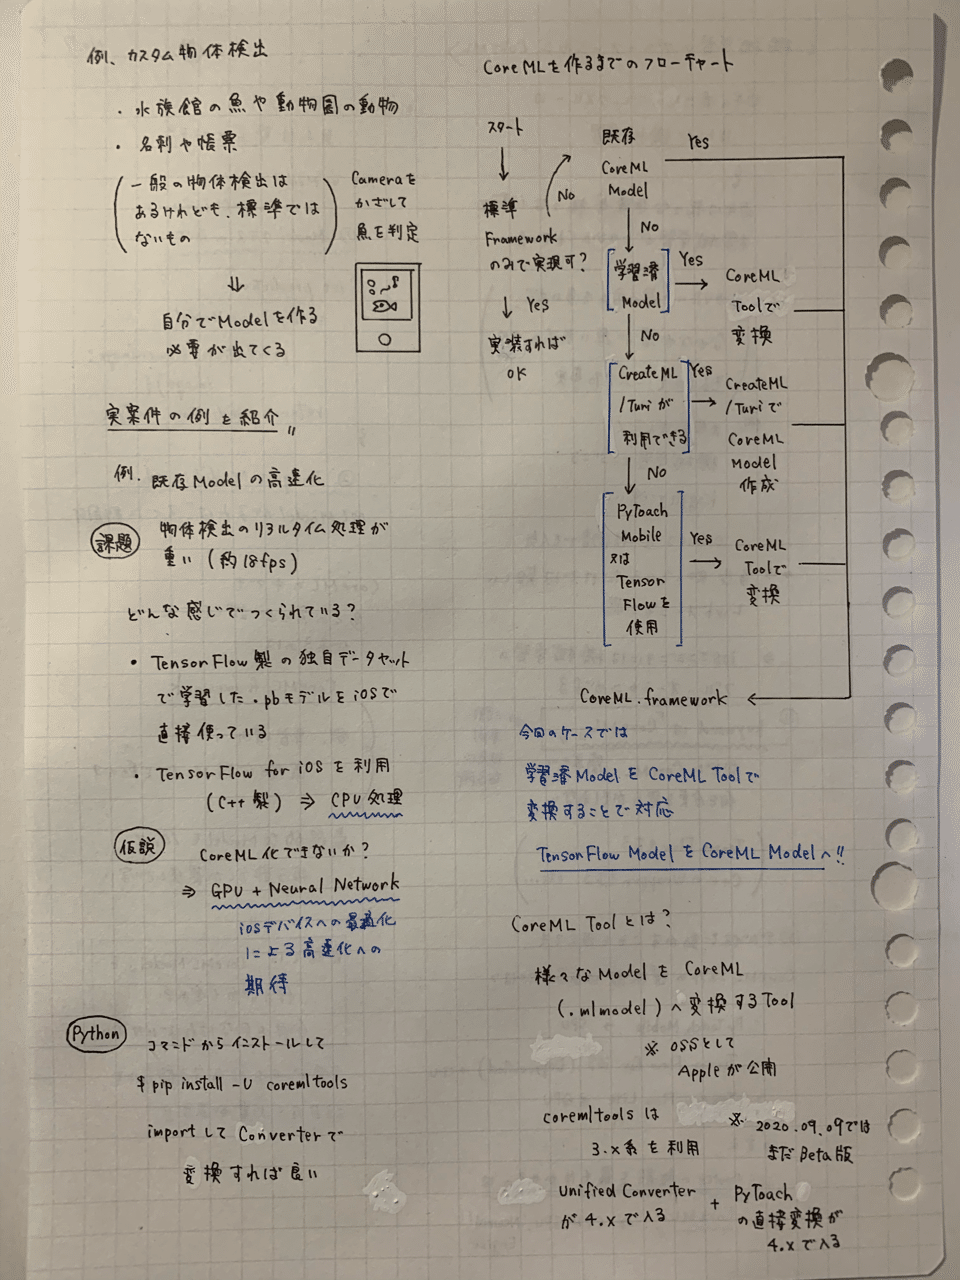 例、カスタム物体検出
・水族館の魚や動物園の動物
・名刺や帳票
(一般の物体検出は
あるけれども、標準では
ないもの)
Cameraを
かざして
魚を判定
⇓
自分でModelを作る
必要が出てくる
実案件の例を紹介〃
例. 既存Modelの高速化
課題
物体検出のリアルタイム処理が
重い (約18fps)
どんな感じでつくられている?
• TensorFlow製の独自データセット
で学習した.pbモデルをiOSで
直接使っている
• TensorFlow for iOSを利用
(C++製) ⇒ CPU処理
仮説
CoreML化できないか?
⇒ GPU + Neural Network
iosデバイスへの最適化
による高速化への
期待
Python
コマンドからインストールして
$ pip install -U coremltools
importしてConverterで
変換すれば良い
CoreMLを作るまでのフローチャート
スタート
標準
Framework
のみで実現可?
Yes
実装すれば
OK
No
既存
CoreML
Model
Yes
No
学習済
Model
Yes
CoreML
Toolで
変換
No
CreateML
/Turiが
利用できる
Yes
CreateML
/Turiで
CoreML
Model
作成
No
PyToach
Mobile
又は
Tensor
Flowを
使用
Yes
CoreML
Toolで
変換
CoreML.framework
今回のケースでは
学習済ModelをCoreML Toolで
変換することで対応
TensorFlow ModelをCoreML Modelへ!!
CoreML Toolとは?
様々なModelを CoreML
(.mlmodel)へ変換するTool
※ OSSとして
Appleが公開
coremltoolsは
3.x系を利用
※ 2020.09.09では
まだBeta版
Unified Converter
が4.xで入る
+ PyToach
の直接変換が
4.xで入る